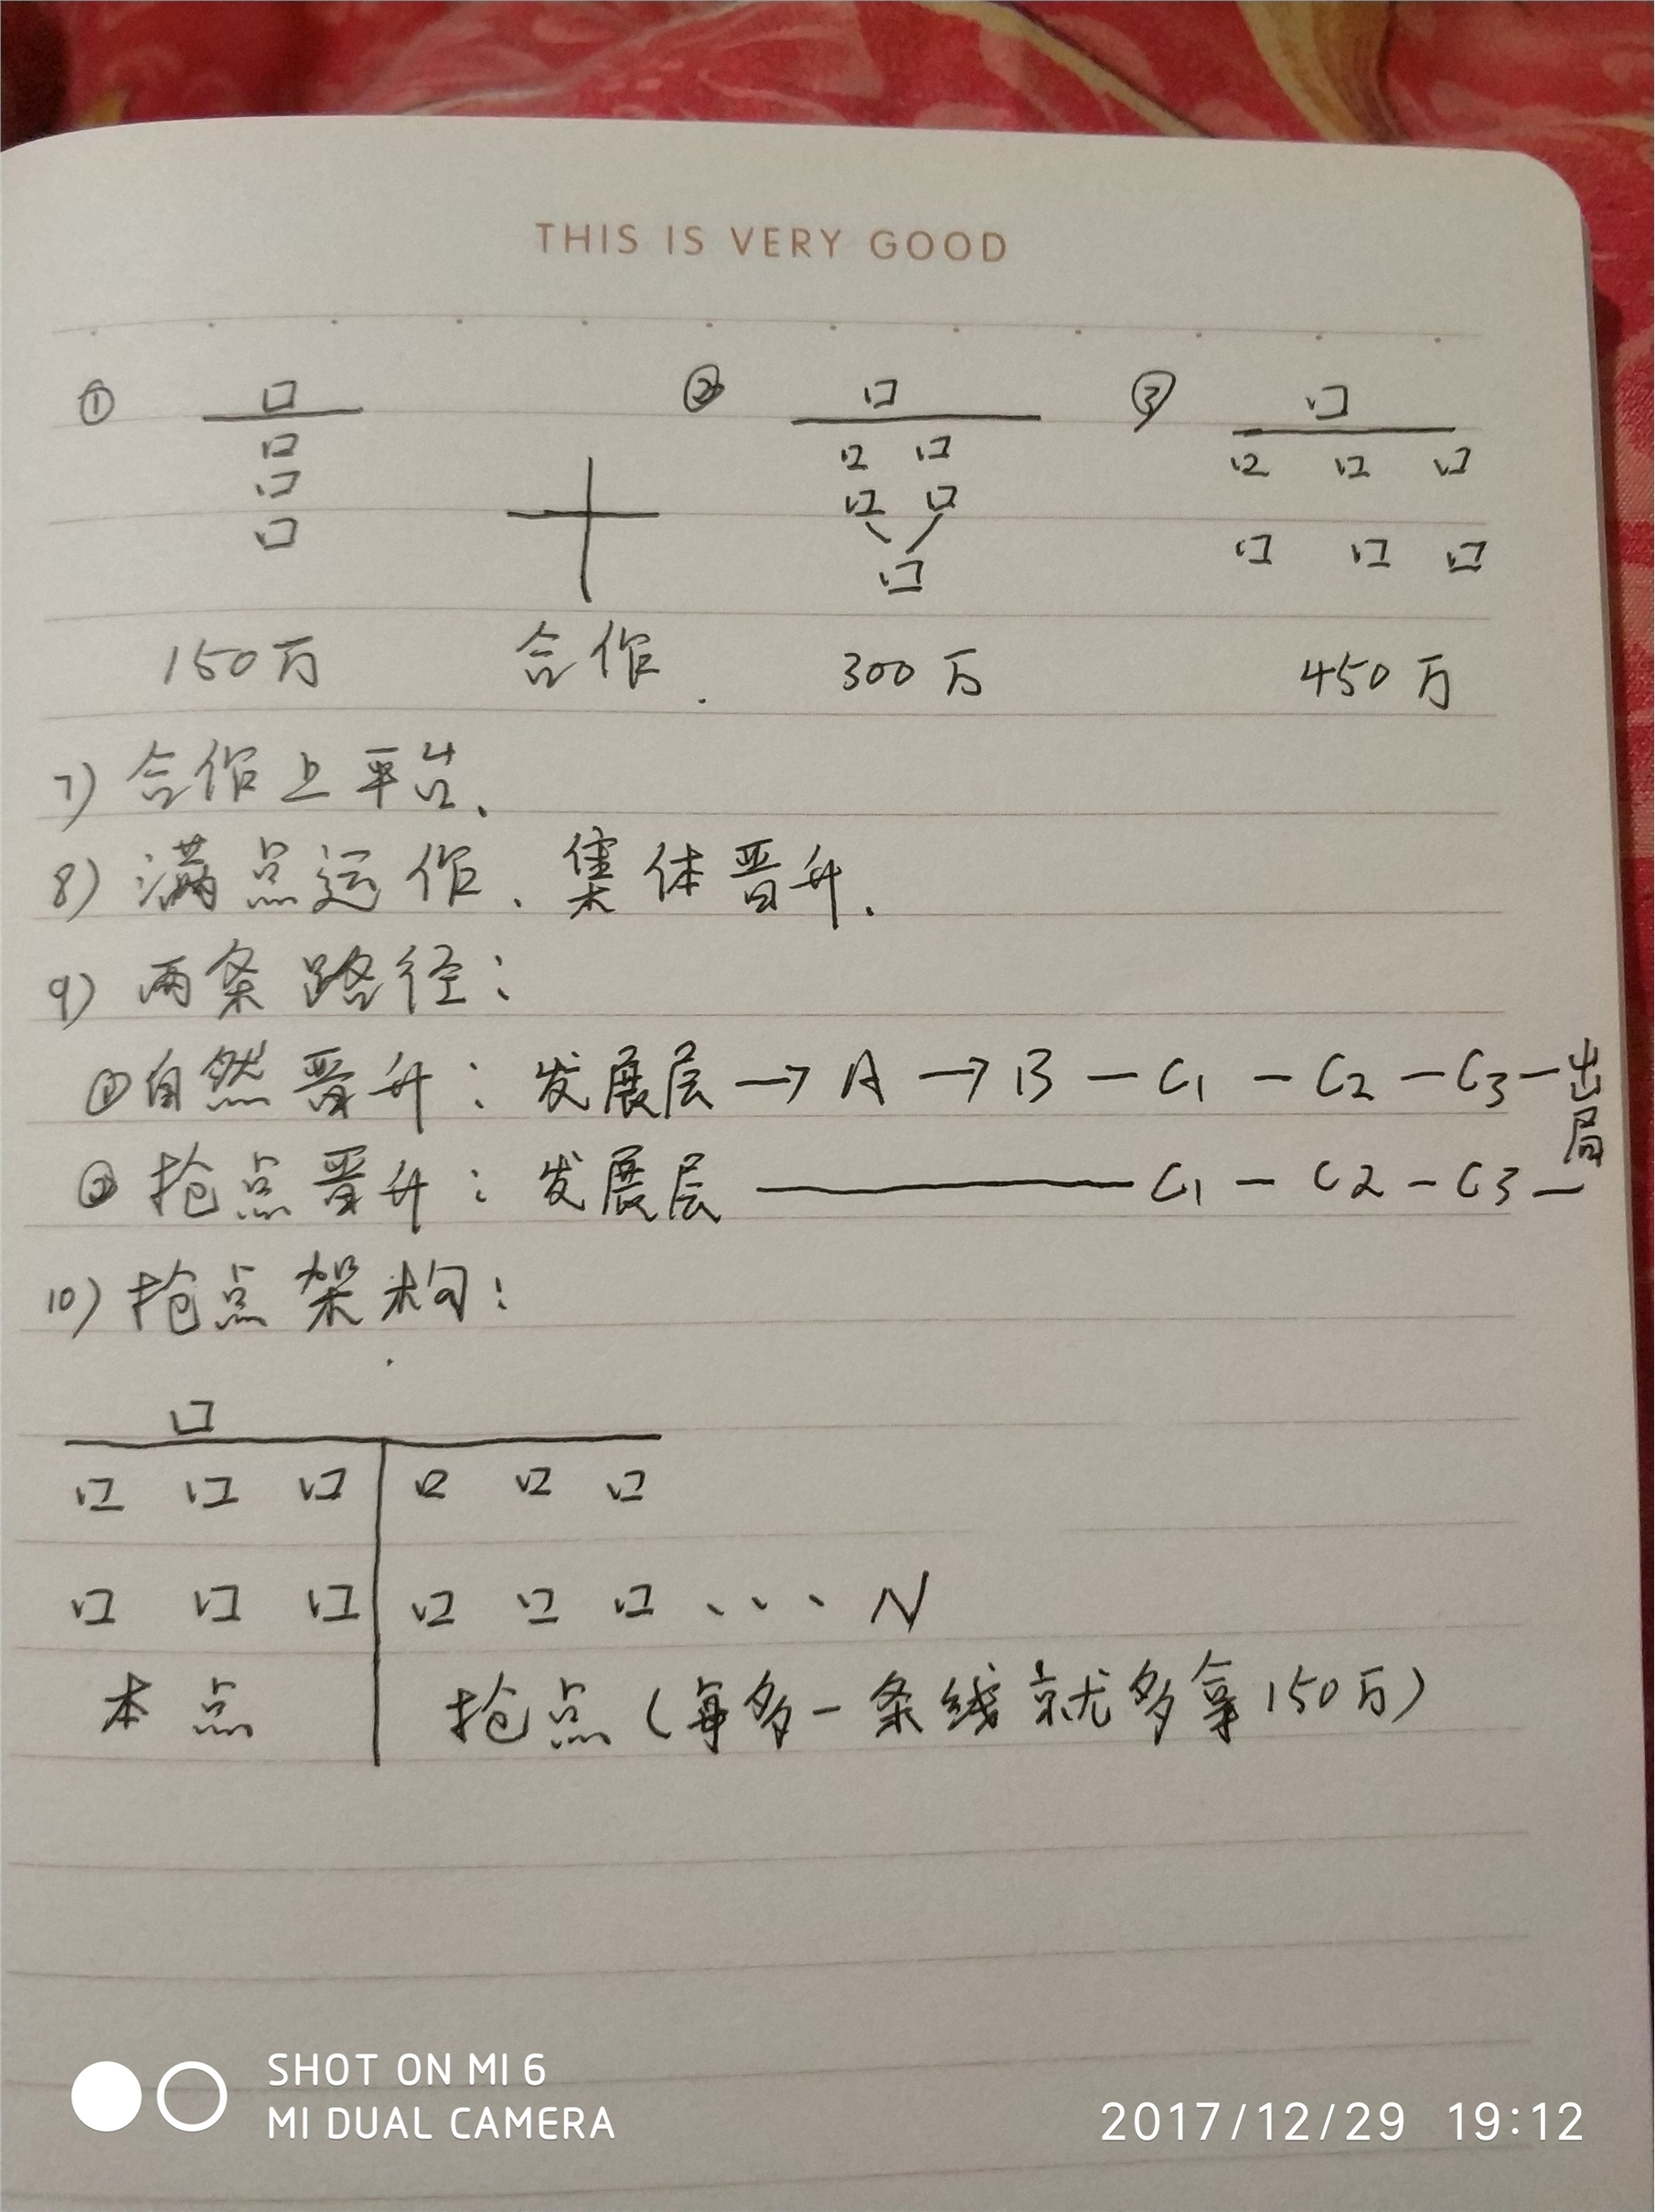 THIS IS VERY GOOD
① ② ③
150万 合作. 300万 450万
7) 合作上平台.
8) 满点运作、集体晋升.
9) 两条路径:
①自然晋升: 发展层→A→B—C1—C2—C3—出局
②抢点晋升: 发展层——C1—C2—C3—
10) 抢点架构:
... N
本点 抢点(每多一条线就多拿150万)
SHOT ON MI 6
MI DUAL CAMERA
2017/12/29 19:12